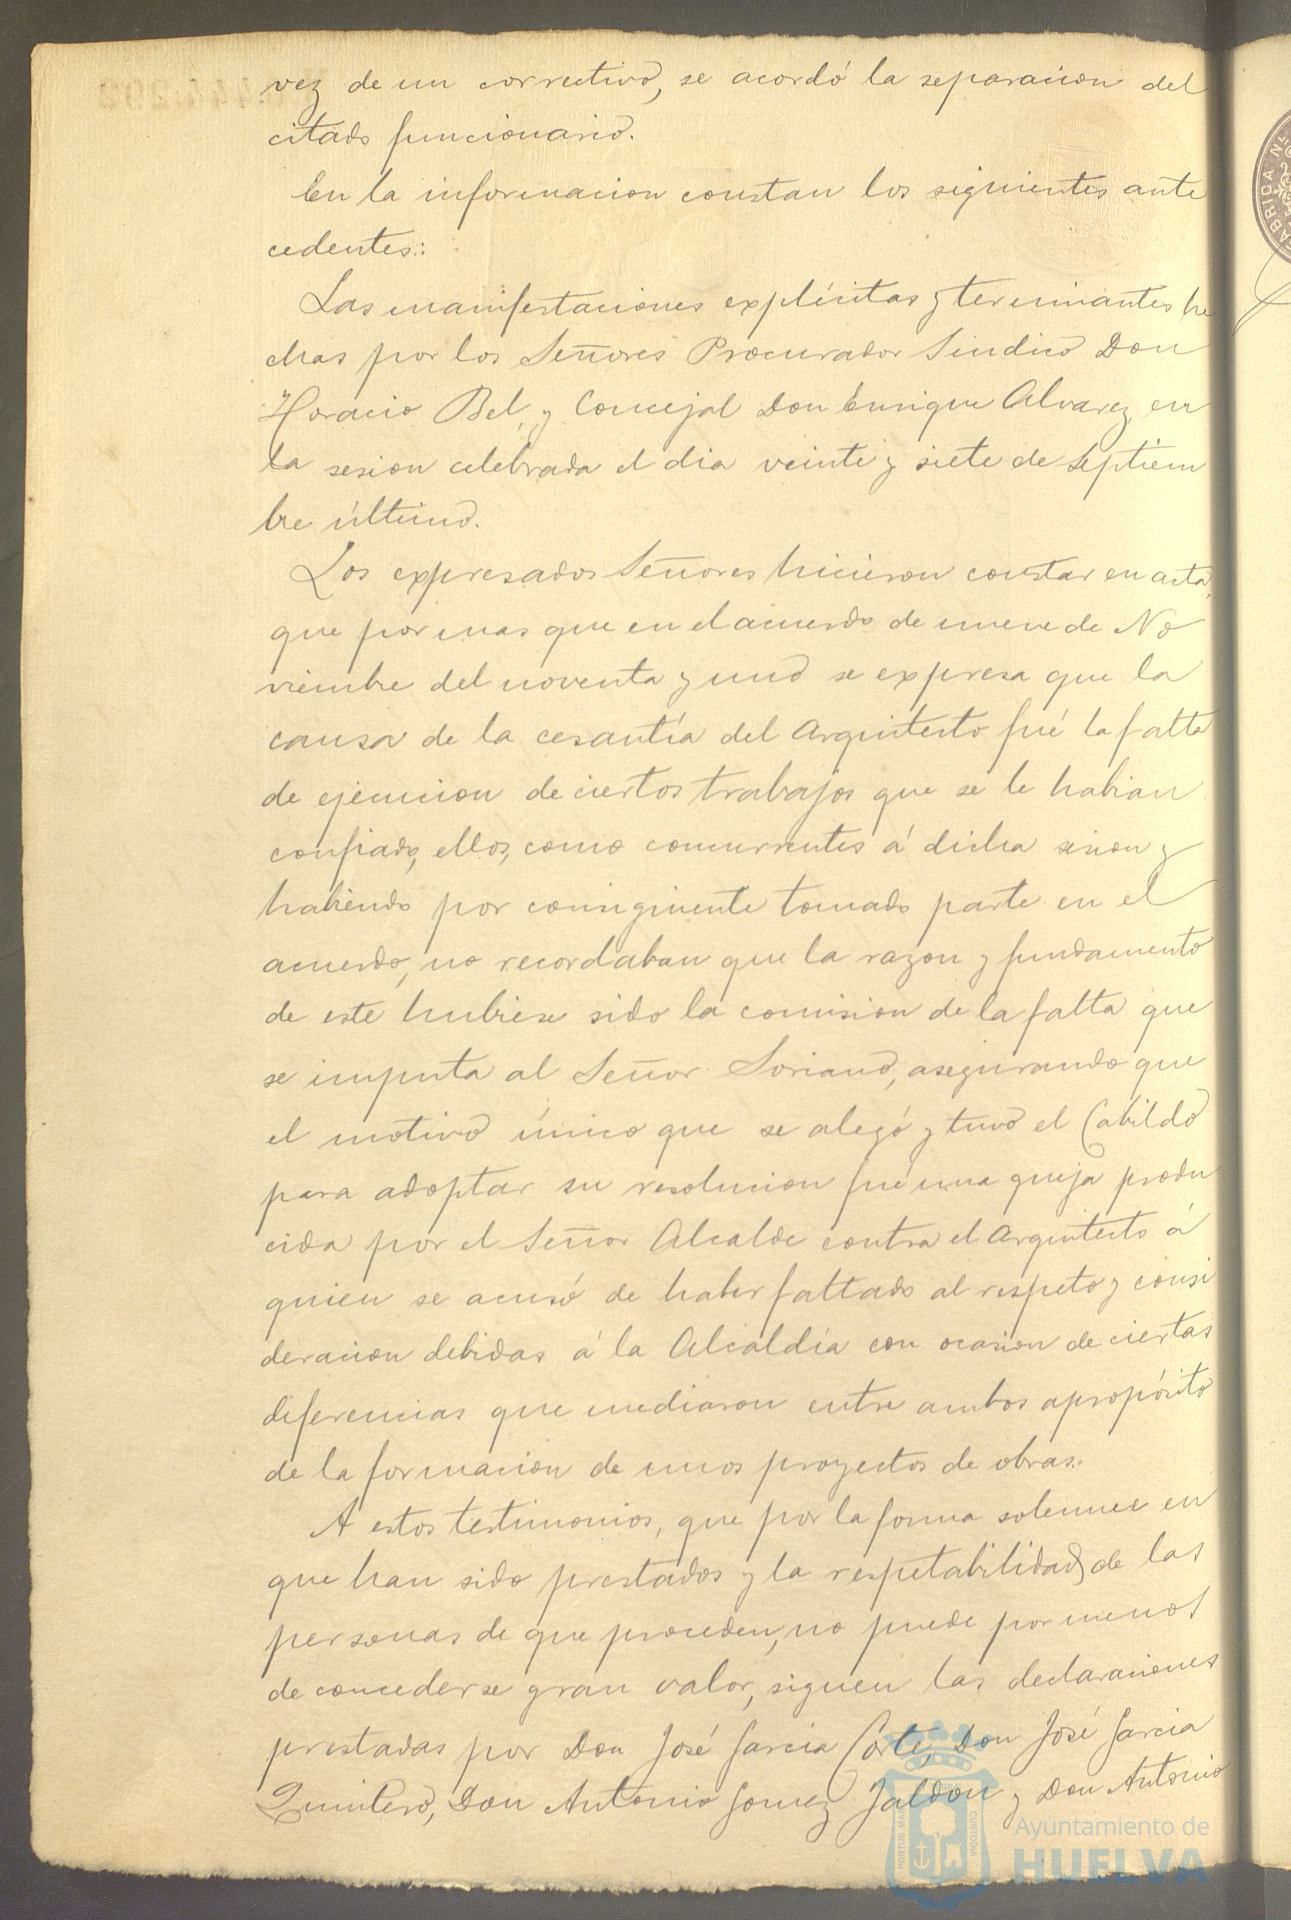 vez de un correctivo, se acordó la separacion del
citado funcionario.
En la informacion constan los siguientes ante
cedentes:
Las manifestaciones explícitas y terminantes he
chas por los Señores Procurador Sindico Don
Horacio Bel, y Concejal Don Enrique Alvarez, en
la sesion celebrada el dia veinte y siete de Septiem
bre último.
Los expresados Señores hicieron constar en acta,
que por mas que en el acuerdo de nueve de No
viembre del noventa y uno se expresa que la
causa de la cesantía del Arquitecto fué la falta
de ejecucion de ciertos trabajos que se le habian
confiado, ellos, como concurrentes á dicha sesion y
habiendo por consiguiente tomado parte en el
acuerdo, no recordaban que la razon y fundamento
de este hubiese sido la comision de la falta que
se imputa al Señor Soriano, asegurando que
el motivo único que se alegó y tuvo el Cabildo
para adoptar su resolucion fué una queja produ
cida por el Señor Alcalde contra el Arquitecto á
quien se acusó de haber faltado al respeto y consi
deracion debidas á la Alcaldía con ocasion de ciertas
diferencias que mediaron entre ambos apropósito
de la formacion de unos proyectos de obras.
A estos testimonios, que por la forma solemne en
que han sido prestados y la respetabilidad de las
personas de que proceden, no puede por menos
de concederse gran valor, siguen las declaraciones
prestadas por Don José Garcia Corte, Don José Garcia
Quintero, Don Antonio Gomez Jaldon y Don Antonio
Ayuntamiento de
HUELVA